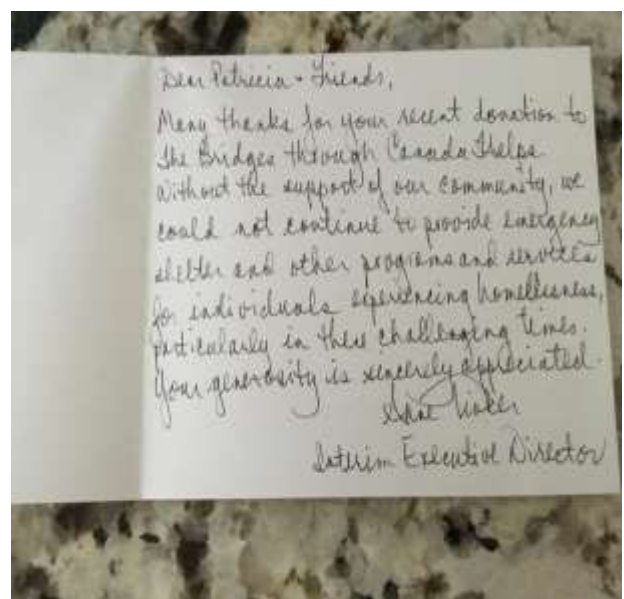 Dear Patricia + Friends,
Many thanks for your recent donation to
The Bridges through Canada Helps.
Without the support of our community, we
could not continue to provide emergency
shelter and other programs and services
for individuals experiencing homelessness,
particularly in these challenging times.
Your generosity is sincerely appreciated.
Interim Executive Director